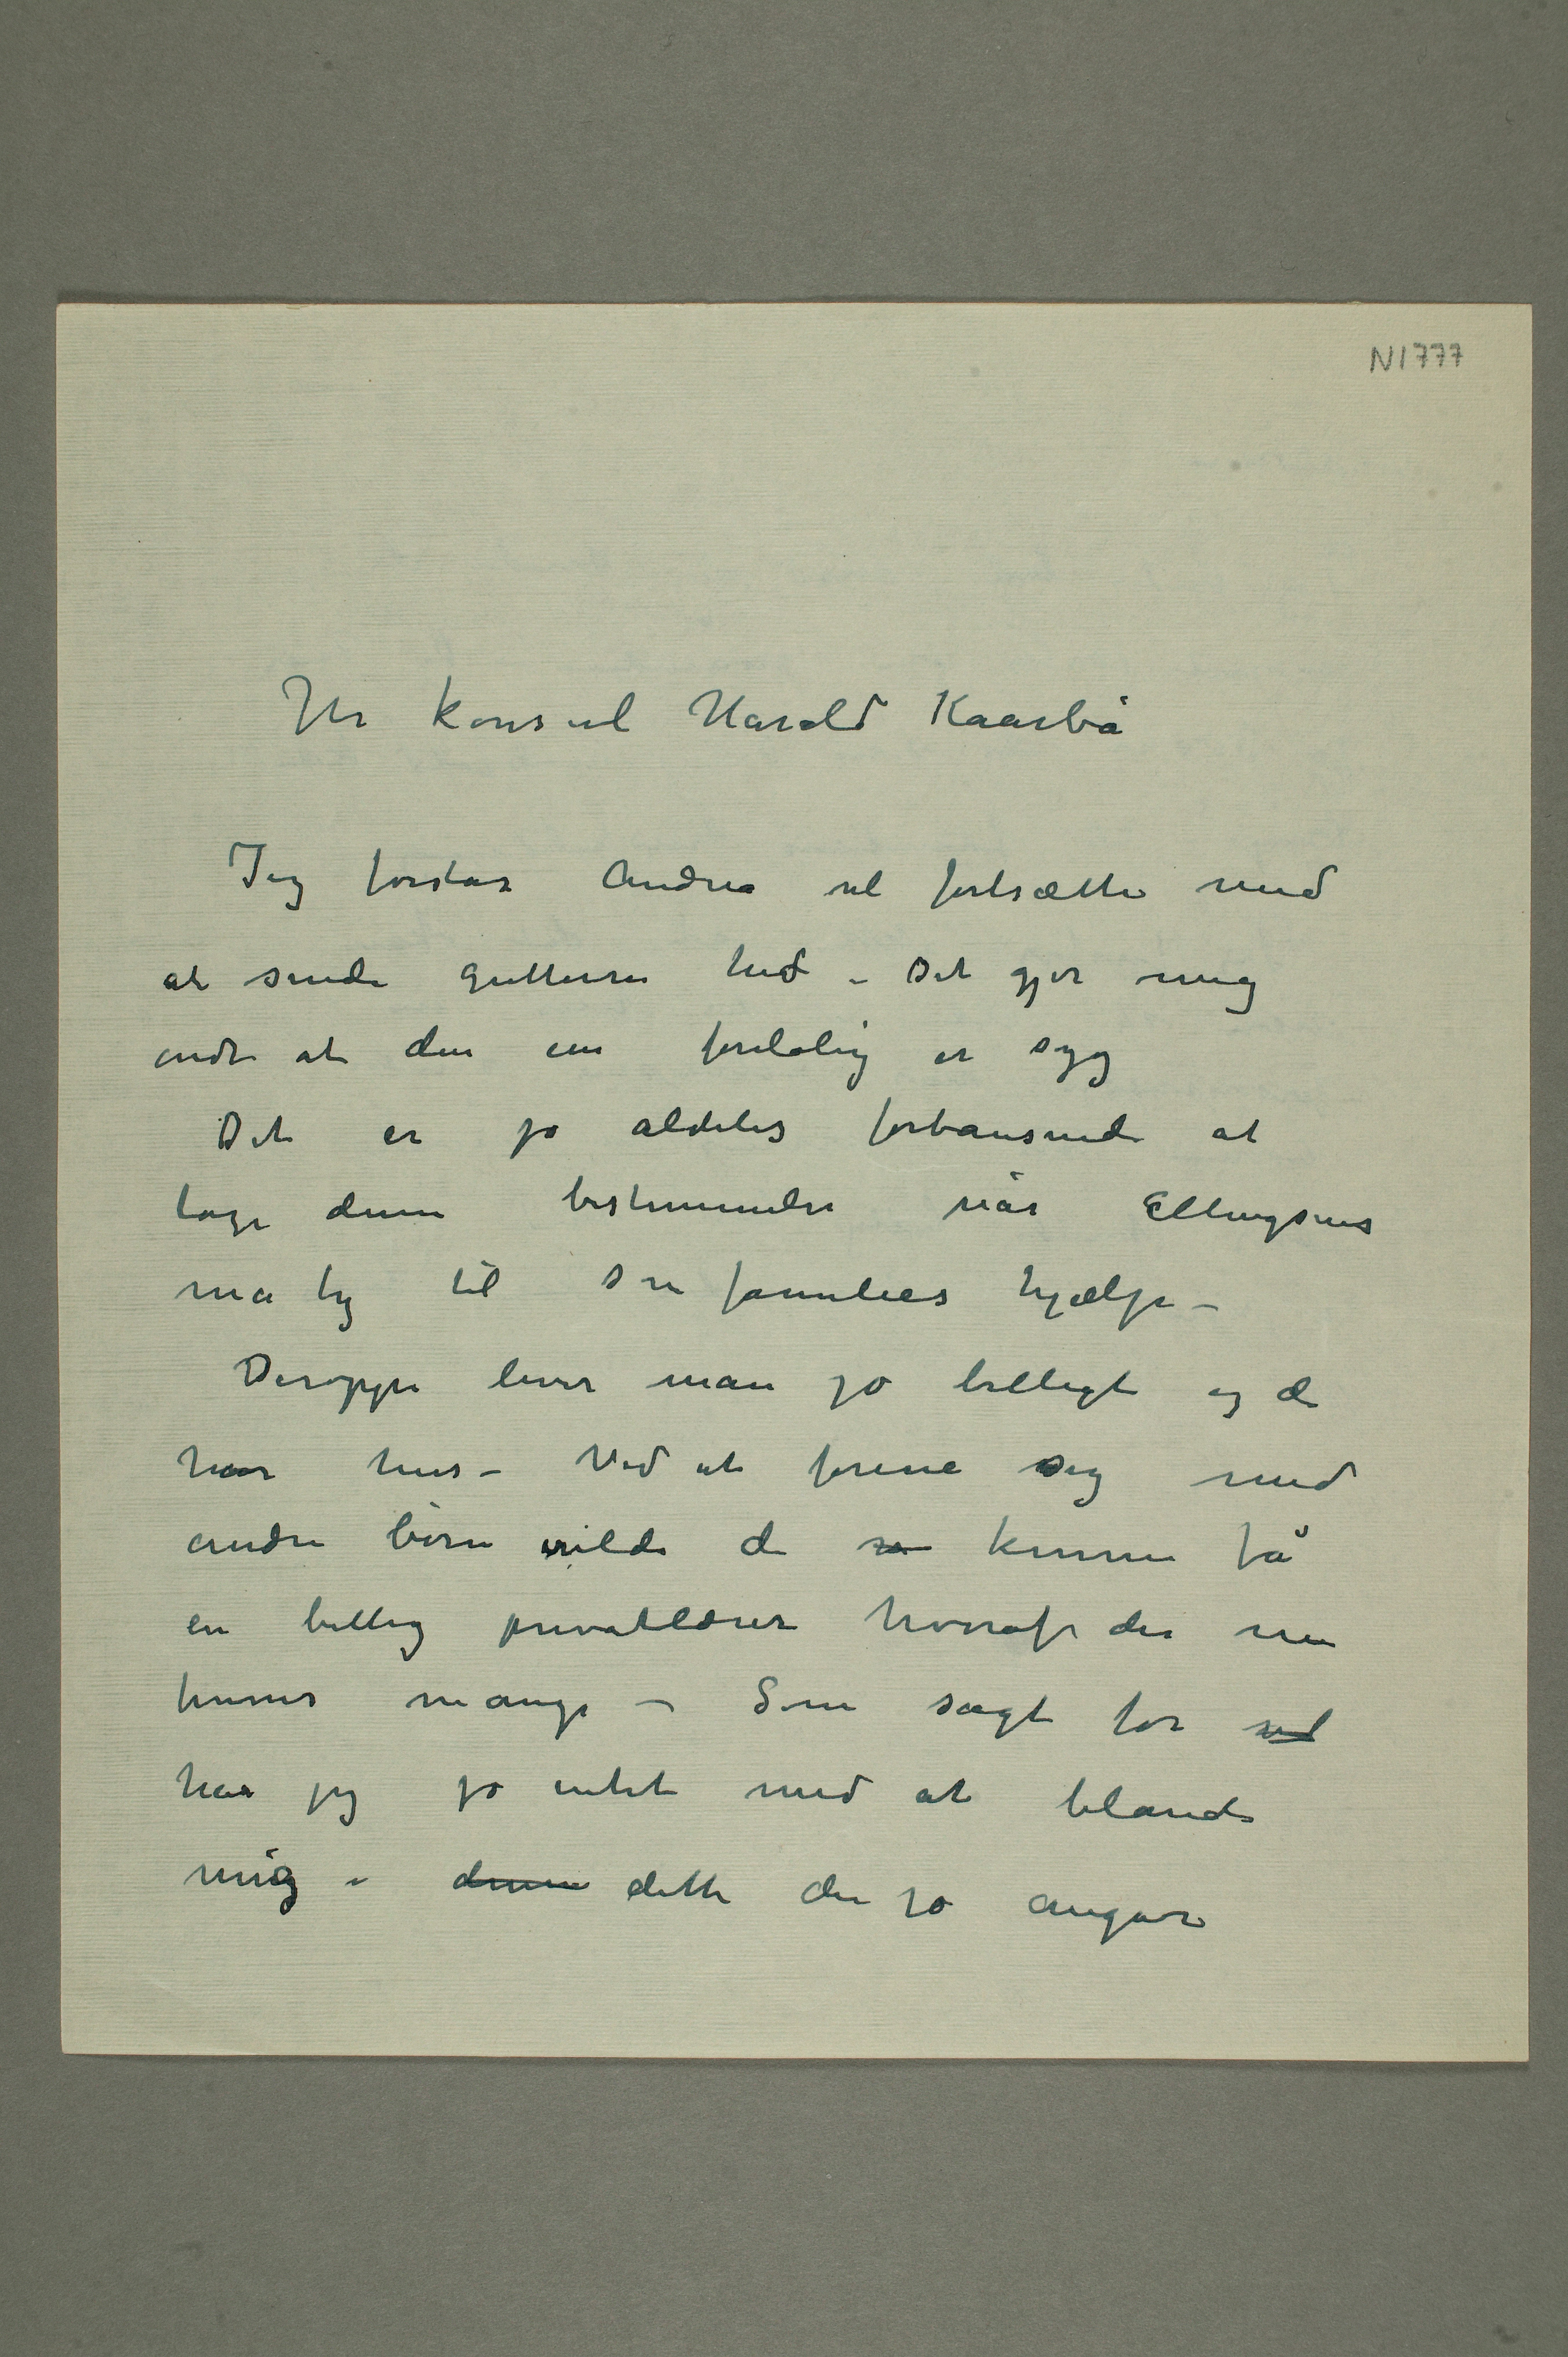 N1777
Hr konsul Harald Kaarbø
Jeg forstår Andrea vil fortsætte med
at sende gutterne hid – Det gjør mig
ondt at den ene foreløbig er syg
Det er jo aldeles forbausende at
tage denne bestemmelse når Ellingsens
må ty til sin families hjælp –
Deroppe lever man jo billigt og de
har hus – Ved at forene sig med
andre børn vilde de så kunne få
en billig privatlærer hvoraf der nu
finnes mange – Som sagt før vil
har jeg jo intet med at blande
mig i denne dette der jo angår